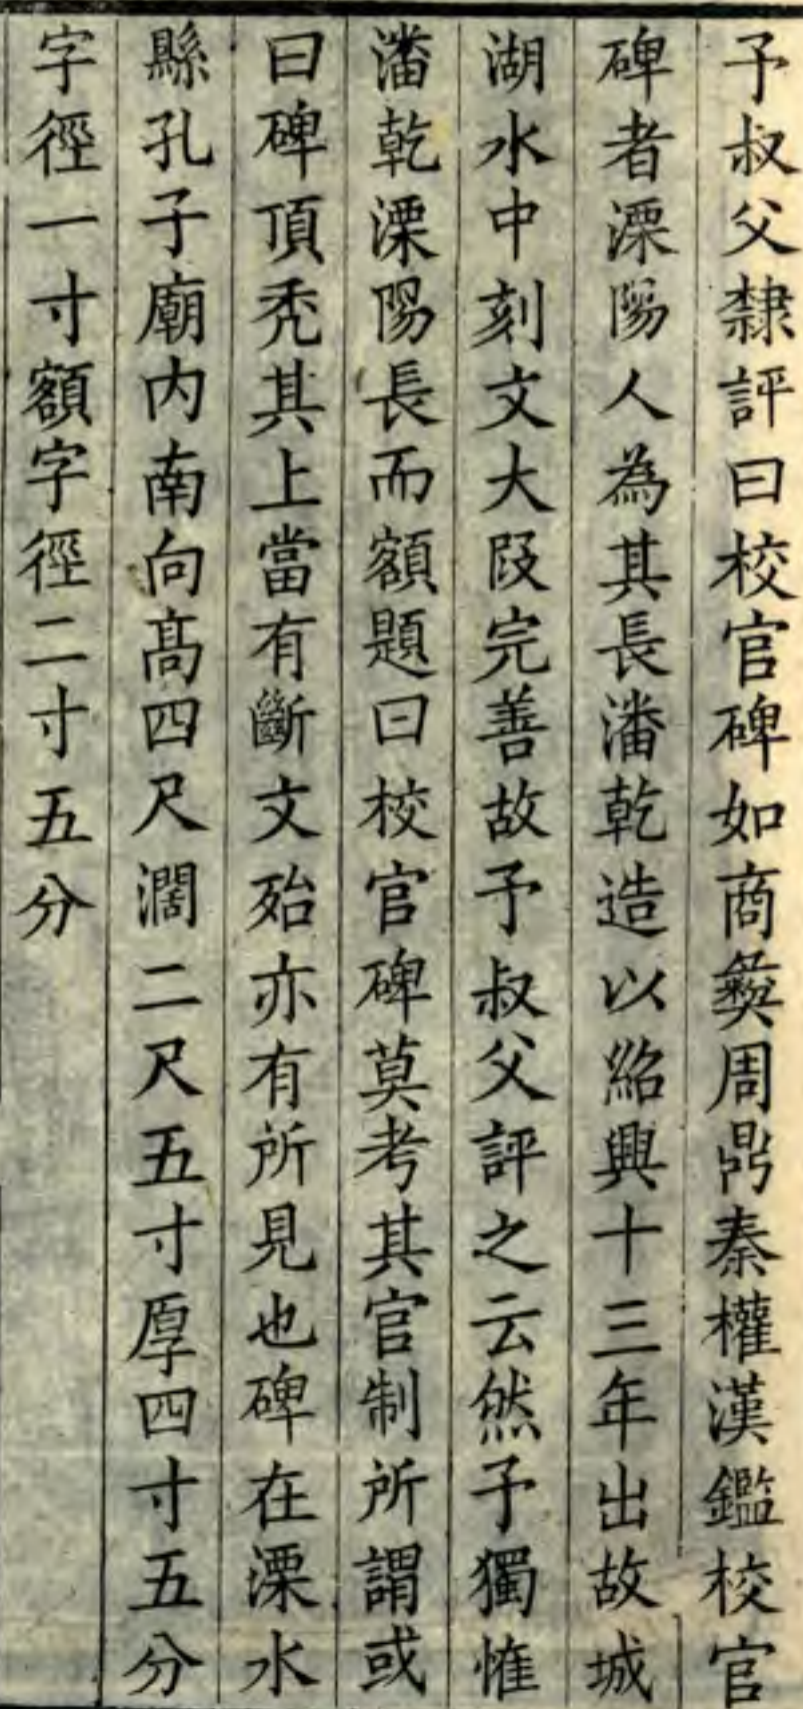 予叔父隸評曰校官碑如商彝周鼎秦權漢鑑校官
碑者溧陽人為其長潘乾造以紹興十三年出故城
湖水中刻文大段完善故予叔父評之云然予獨惟
潘乾溧陽長而額題曰校官碑莫考其官制所謂或
曰碑頂禿其上當有斷文殆亦有所見也碑在溧水
縣孔子廟内南向髙四尺濶二尺五寸厚四寸五分
字徑一寸額字徑二寸五分